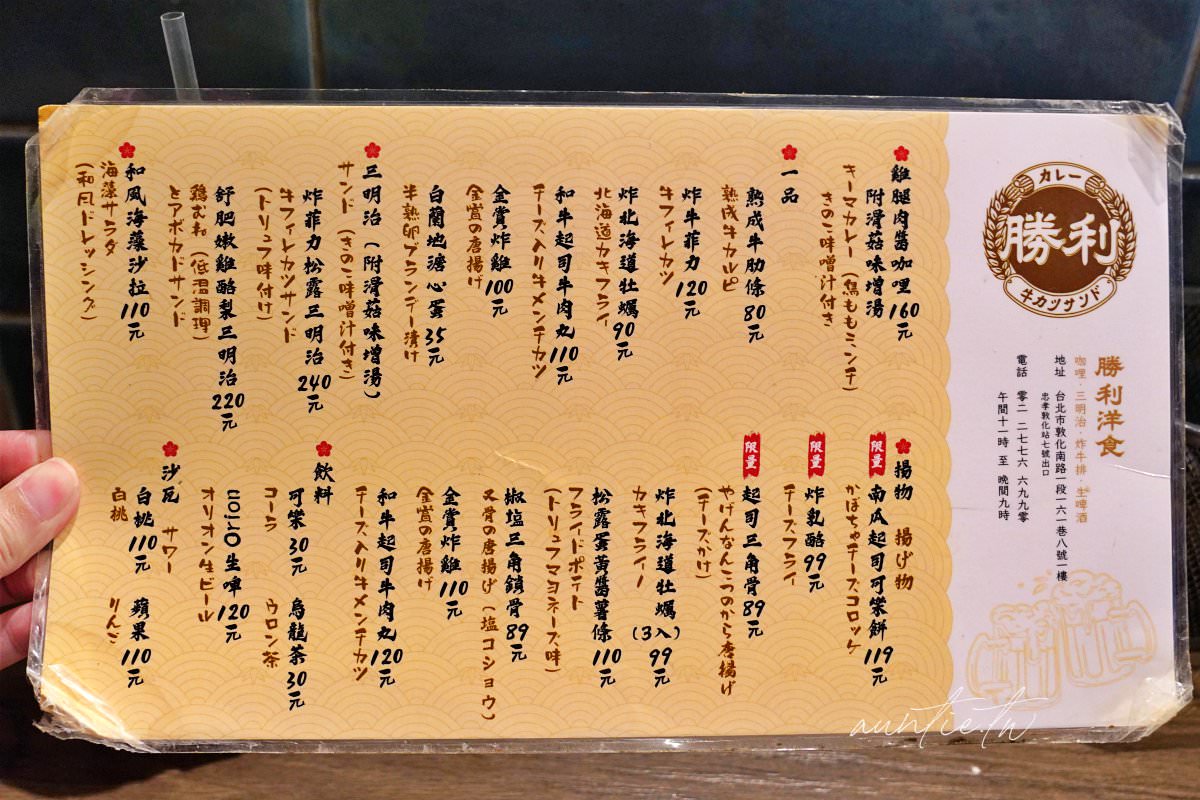 カレー
勝利
牛カツサンド
勝利洋食
咖哩·三明治·炸牛排·生啤酒
地址 台北市敦化南路一段一六一巷八號一樓
忠孝敦化站七號出口
電話 零二 二七七六 六九九零
午間十一時 至 晚間九時
雞腿肉醬咖哩160元
附滑菇味增湯
キーマカレー(鶏ももミンチ)
きのこ味噌汁付き
一品
熟成牛肋條80元
熟成牛カルビ
炸牛菲力120元
牛フィレカツ
炸北海道牡蠣90元
北海道カキフライ
和牛起司牛肉丸110元
チーズ入り牛メンチカツ
金賞炸雞100元
金賞の唐揚げ
白蘭地溏心蛋35元
半熟卵ブランデー漬け
三明治(附滑菇味增湯)
サンド(きのこ味噌汁付き)
炸菲力松露三明治240元
牛フィレカツサンド
(トリュフ味付け)
舒肥嫩雞酪梨三明治220元
鶏むね(低温調理)
とアボカドサンド
和風海藻沙拉110元
海藻サラダ
(和風ドレッシング)
揚物 揚げ物
限量 南瓜起司可樂餅119元
かぼちゃチーズコロッケ
限量 炸乳酪99元
チーズフライ
限量 起司三角骨89元
やげんなんこつのから唐揚げ
(チーズかけ)
炸北海道牡蠣(3入)99元
カキフライ
松露蛋黃醬薯條110元
フライドポテト
(トリュフマヨネーズ味)
椒塩三角鎖骨89元
叉骨の唐揚げ(塩コショウ)
金賞炸雞110元
金賞の唐揚げ
和牛起司牛肉丸120元
チーズ入り牛メンチカツ
飲料
可樂30元 烏龍茶30元
コーラ ウロン茶
Orion生啤120元
オリオン生ビール
沙瓦 サワー
白桃110元 蘋果110元
白桃 りんご
auntie.tw